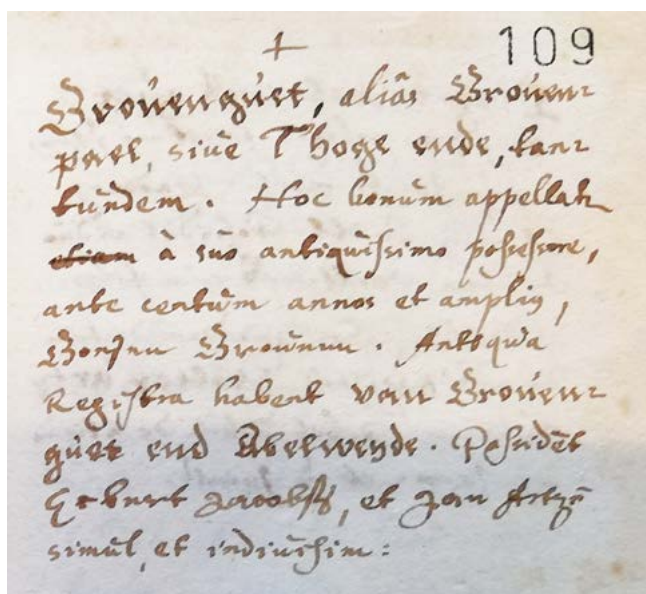 + 109
Brouenguet, aliâs Brouen-
pael, siue T'hoge ende, tan-
tundem. Hoc bonum appellat~
etiam à suo antiquissimo possessore,
ante centum annos et amplius,
Brounun. Antiqua
Registra habent van Brouen-
guet end Abelweyde. Possidēt
Ecbert Jacobss, et Jan
simul, et indiuisim: